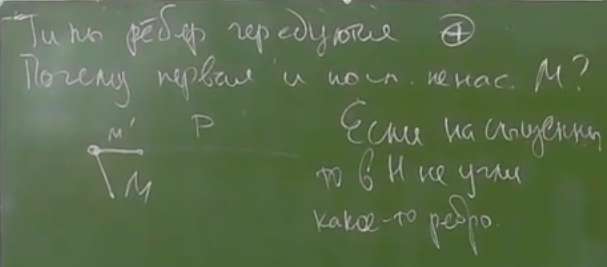 - Типы рёбер чередуются ⊕
Почему первая и посл. ненас. M?
M' P Если насыщенны
M то в H не учли
какое-то ребро.